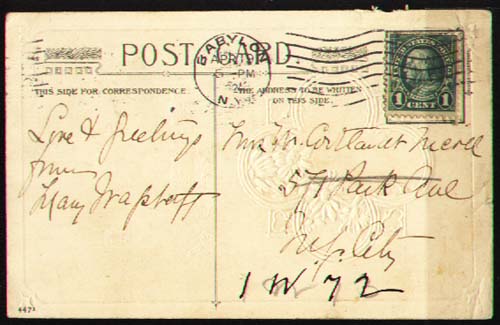 POST CARD
BABYLON
APR 19
5-PM
N.Y.
UNITED STATES POSTAGE
1 CENT 1
THIS SIDE FOR CORRESPONDENCE
THE ADDRESS TO BE WRITTEN
ON THIS SIDE.
Love & greetings
from
Mary
Mrs W. Cortlandt
Park Ave
N.Y. City
1 W 72